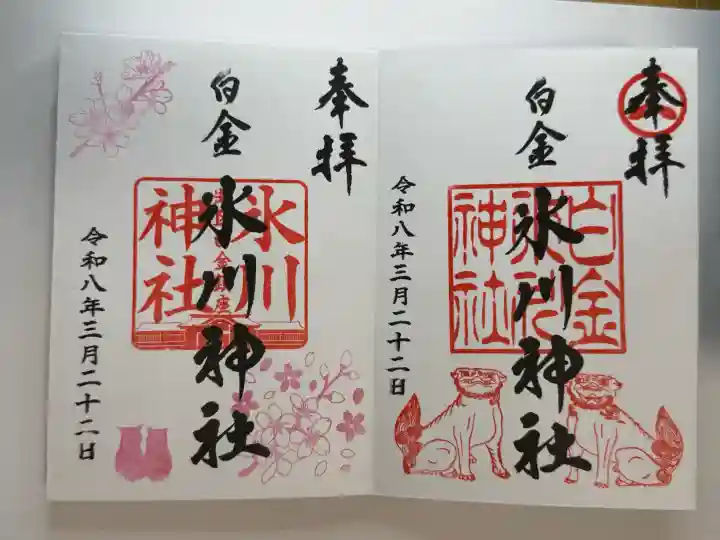 奉拝
白金
氷川神社
令和八年三月二十二日
氷川
神社
奉拝
白金
氷川神社
令和八年三月二十二日
白金
氷川
神社